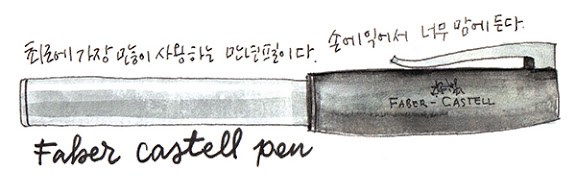 최근에 가장 많이 사용하는 만년필이다. 손에 익어서 너무 맘에 든다.
FABER-CASTELL
Faber castell pen